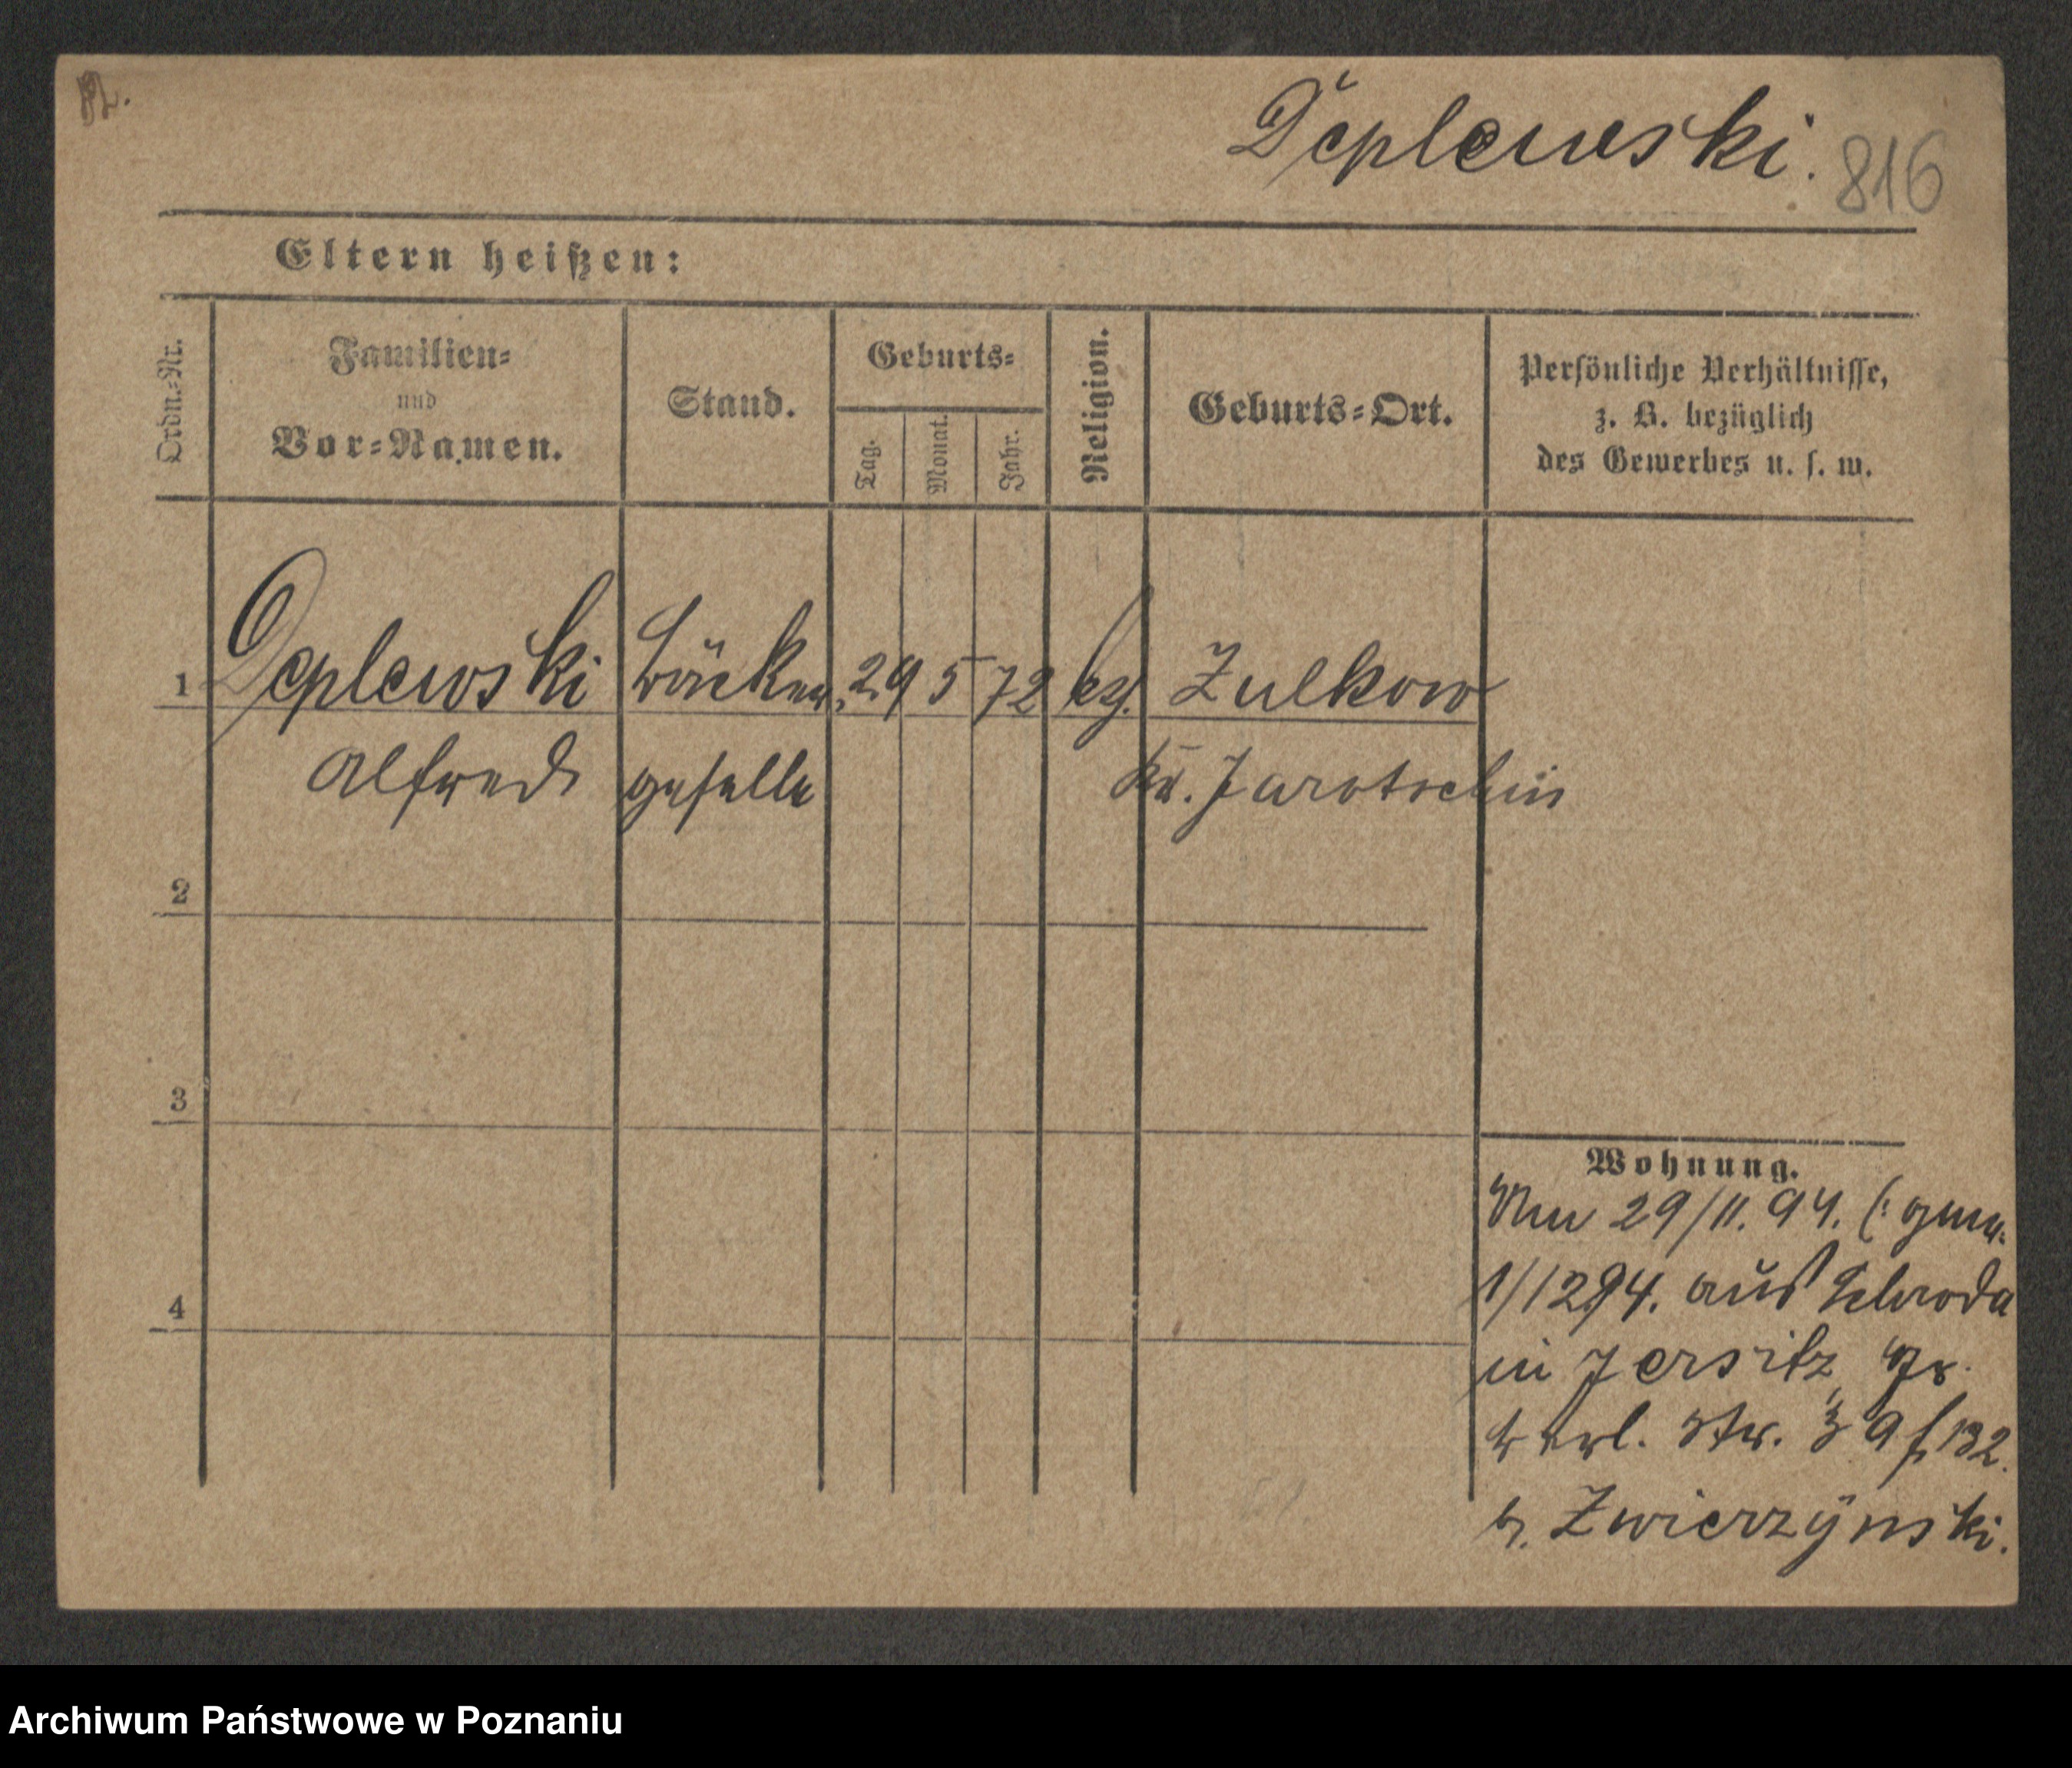 Deplewski. 816
Eltern heißen:
Ordn.-Nr.
Familien-
und
Vor-Namen.
Stand.
Geburts-
Tag.
Monat.
Jahr.
Religion.
Geburts-Ort.
Persönliche Verhältnisse,
z. B. bezüglich
des Gewerbes u. s. w.
1 Deplewski Bäcker 29 5 72 Zulkow
Alfred geselle Kr. Jarotschin
2
3
4
Wohnung.
29/11. 94. (:
1/12 94. aus Schroda
in Jersitz, Gr.
Berl. Str. 39 132.
b. Zwierzÿnski.
Archiwum Państwowe w Poznaniu